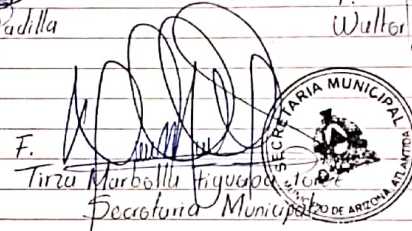 Padilla
Walter
F.
Tirza Marbella Figueroa
Secretaria Municipal
SECRETARIA MUNICIPAL
MUNICIPIO DE ARIZONA ATLANTIDA